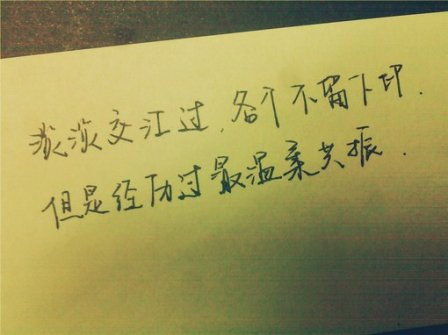 泛泛交汇过.各个不留下印.
但是经历过最温柔共振.